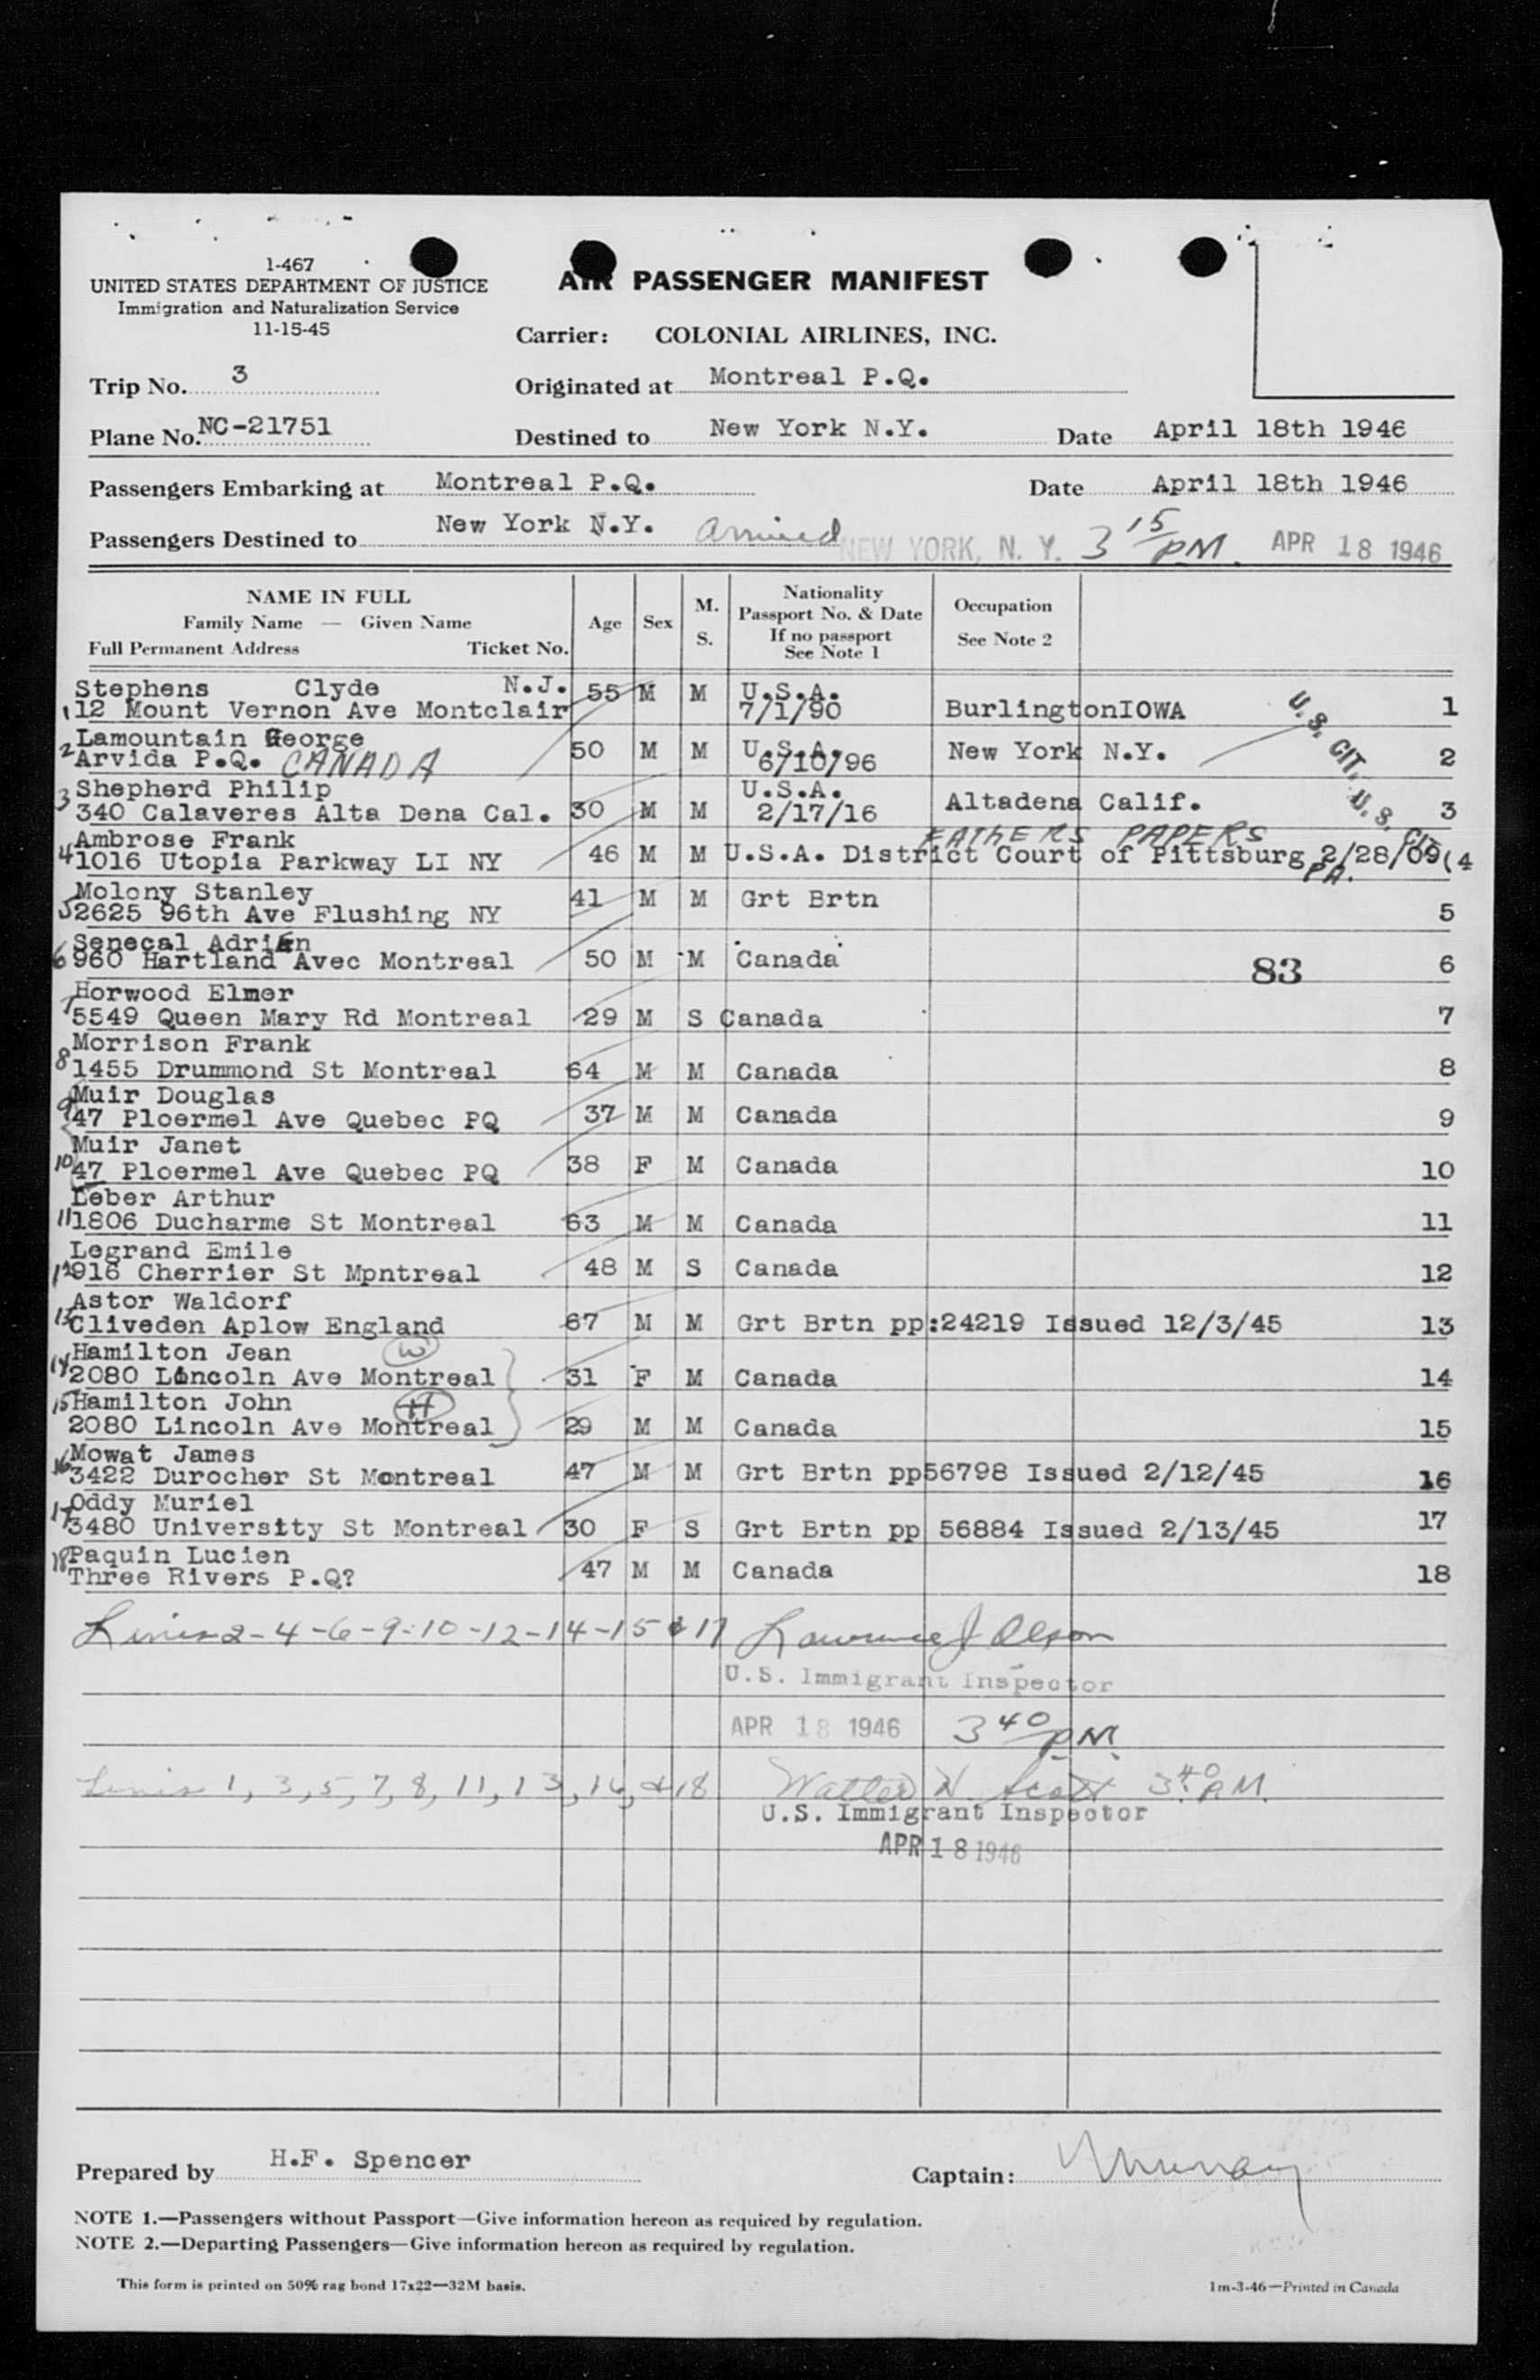 1-467
UNITED STATES DEPARTMENT OF JUSTICE
Immigration and Naturalization Service
11-15-45
AIR PASSENGER MANIFEST
Carrier: COLONIAL AIRLINES, INC.
Trip No. 3
Originated at Montreal P.Q.
Plane No. NC-21751
Destined to New York N.Y.
Date April 18th 1946
Passengers Embarking at Montreal P.Q.
Date April 18th 1946
Passengers Destined to New York N.Y. Arrived NEW YORK, N. Y. 3 15 PM. APR 18 1946
NAME IN FULL
Family Name — Given Name
Full Permanent Address Ticket No.
Age Sex M. S.
Nationality
Passport No. & Date
If no passport
See Note 1
Occupation
See Note 2
Stephens Clyde N.J. 55 M M U.S.A.
1 12 Mount Vernon Ave Montclair 7/1/90 BurlingtonIOWA 1
U.S. CIT.
Lamountain George 50 M M U.S.A. New York N.Y. 2
2 Arvida P.Q. CANADA 6/10/96
Shepherd Philip U.S.A.
3 340 Calaveres Alta Dena Cal. 30 M M 2/17/16 Altadena Calif. 3
U.S. CIT.
Ambrose Frank FATHERS PAPERS
4 1016 Utopia Parkway LI NY 46 M M U.S.A. District Court of Pittsburg 2/28/09(4
PA.
Molony Stanley 41 M M Grt Brtn
5 2625 96th Ave Flushing NY 5
Senecal Adrien
6 960 Hartland Avec Montreal 50 M M Canada 83 6
Horwood Elmer
7 5549 Queen Mary Rd Montreal 29 M S Canada 7
Morrison Frank
8 1455 Drummond St Montreal 64 M M Canada 8
Muir Douglas
9 47 Ploermel Ave Quebec PQ 37 M M Canada 9
Muir Janet
10 47 Ploermel Ave Quebec PQ 38 F M Canada 10
Leber Arthur
11 1806 Ducharme St Montreal 63 M M Canada 11
Legrand Emile
12 916 Cherrier St Mpntreal 48 M S Canada 12
Astor Waldorf
13 Cliveden Aplow England 67 M M Grt Brtn pp:24219 Issued 12/3/45 13
Hamilton Jean W
14 2080 Lincoln Ave Montreal 31 F M Canada 14
15 Hamilton John H
2080 Lincoln Ave Montreal 29 M M Canada 15
Mowat James
16 3422 Durocher St Montreal 47 M M Grt Brtn pp56798 Issued 2/12/45 16
Oddy Muriel
17 3480 Universtty St Montreal 30 F S Grt Brtn pp 56884 Issued 2/13/45 17
18 Paquin Lucien
Three Rivers P.Q? 47 M M Canada 18
Lines 2-4-6-9-10-12-14-15 & 17 Lawrence J Olson
U.S. Immigrant Inspector
APR 18 1946 3 40 PM.
Lines 1, 3, 5, 7, 8, 11, 13, 16, & 18 Walter N. Scott 3:40 PM.
U.S. Immigrant Inspector
APR 18 1946
Prepared by H.F. Spencer
Captain: Murray
NOTE 1.—Passengers without Passport—Give information hereon as required by regulation.
NOTE 2.—Departing Passengers—Give information hereon as required by regulation.
This form is printed on 50% rag bond 17x22—32M basis.
1m-3-46—Printed in Canada